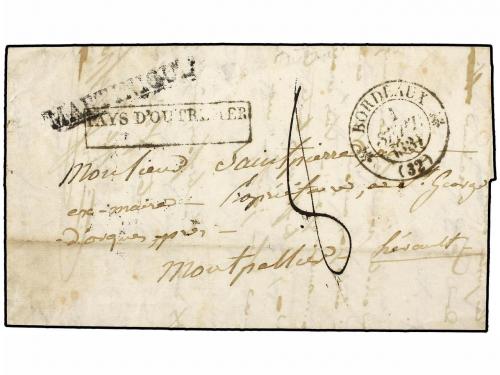 MARTINIQUE
PAYS D'OUTREMER
BORDEAUX
1
SEPT
(32)
8
Monsieur Saintpierre
ex-maire Propriétaire, à St George
d'orques, près
Montpellier hérault